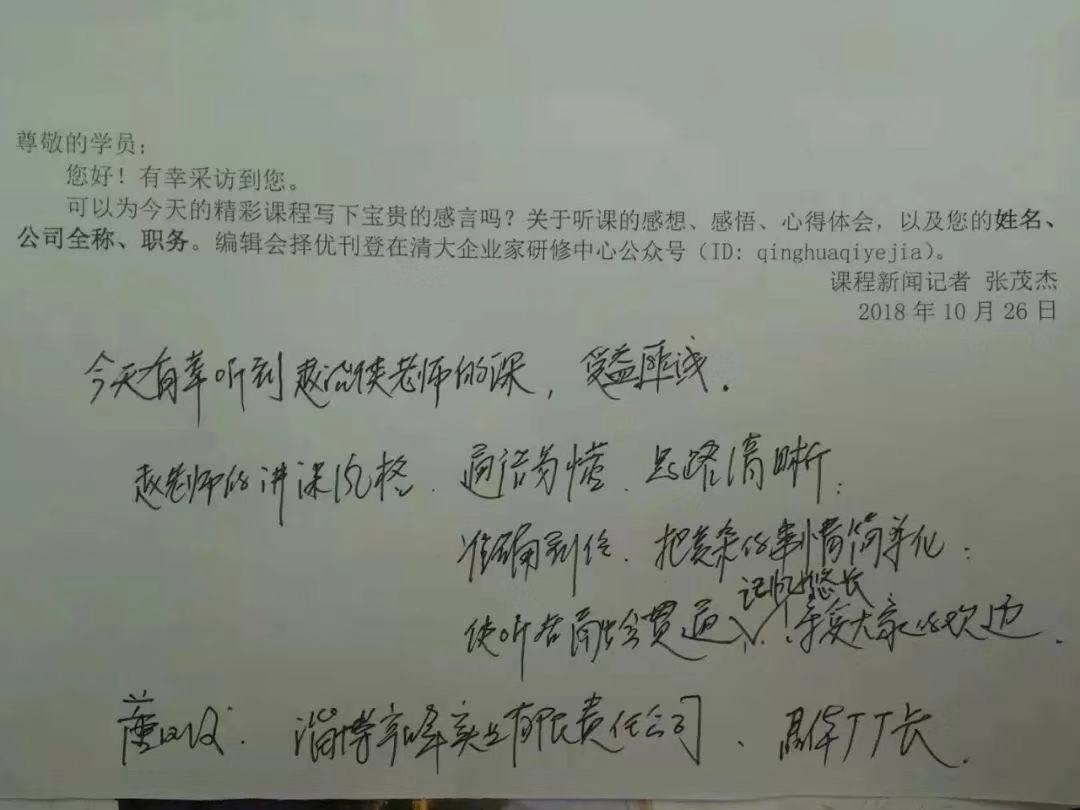 尊敬的学员：
您好！有幸采访到您。
可以为今天的精彩课程写下宝贵的感言吗？关于听课的感想、感悟、心得体会，以及您的姓名、
公司全称、职务。编辑会择优刊登在清大企业家研修中心公众号（ID: qinghuaqiyejia）。
课程新闻记者 张茂杰
2018 年 10 月 26 日
今天有幸听到赵 老师的课，受益匪浅．
赵老师的讲课风格．通俗易懂．思路清晰；
准确到位．把复杂的事情简单化；
记忆悠长
使听者融会贯通 ．深受大家的欢迎．
董 ．淄博 峰实业有限责任公司、 厂厂长．